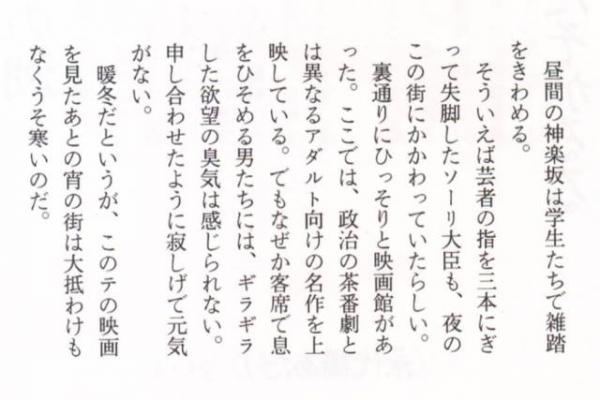 昼間の神楽坂は学生たちで雑踏
をきわめる。
そういえば芸者の指を三本にぎ
って失脚したソーリ大臣も、夜の
この街にかかわっていたらしい。
裏通りにひっそりと映画館があ
った。ここでは、政治の茶番劇と
は異なるアダルト向けの名作を上
映している。でもなぜか客席で息
をひそめる男たちには、ギラギラ
した欲望の臭気は感じられない。
申し合わせたように寂しげで元気
がない。
暖冬だというが、このテの映画
を見たあとの宵の街は大抵わけも
なくうそ寒いのだ。